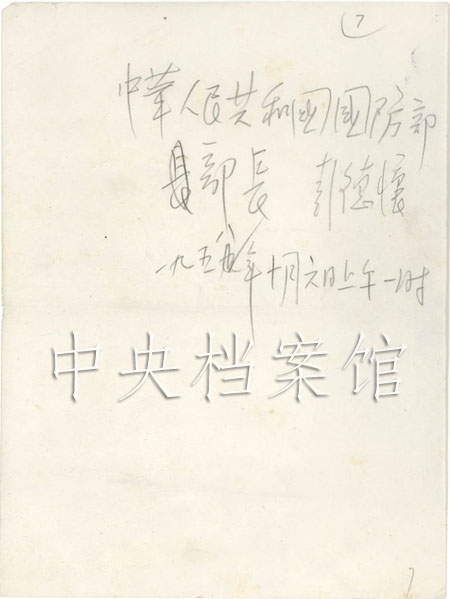 7
中華人民共和国国防部
部长 彭德懷
一九五八年十月六日上午一时
中央档案馆
7